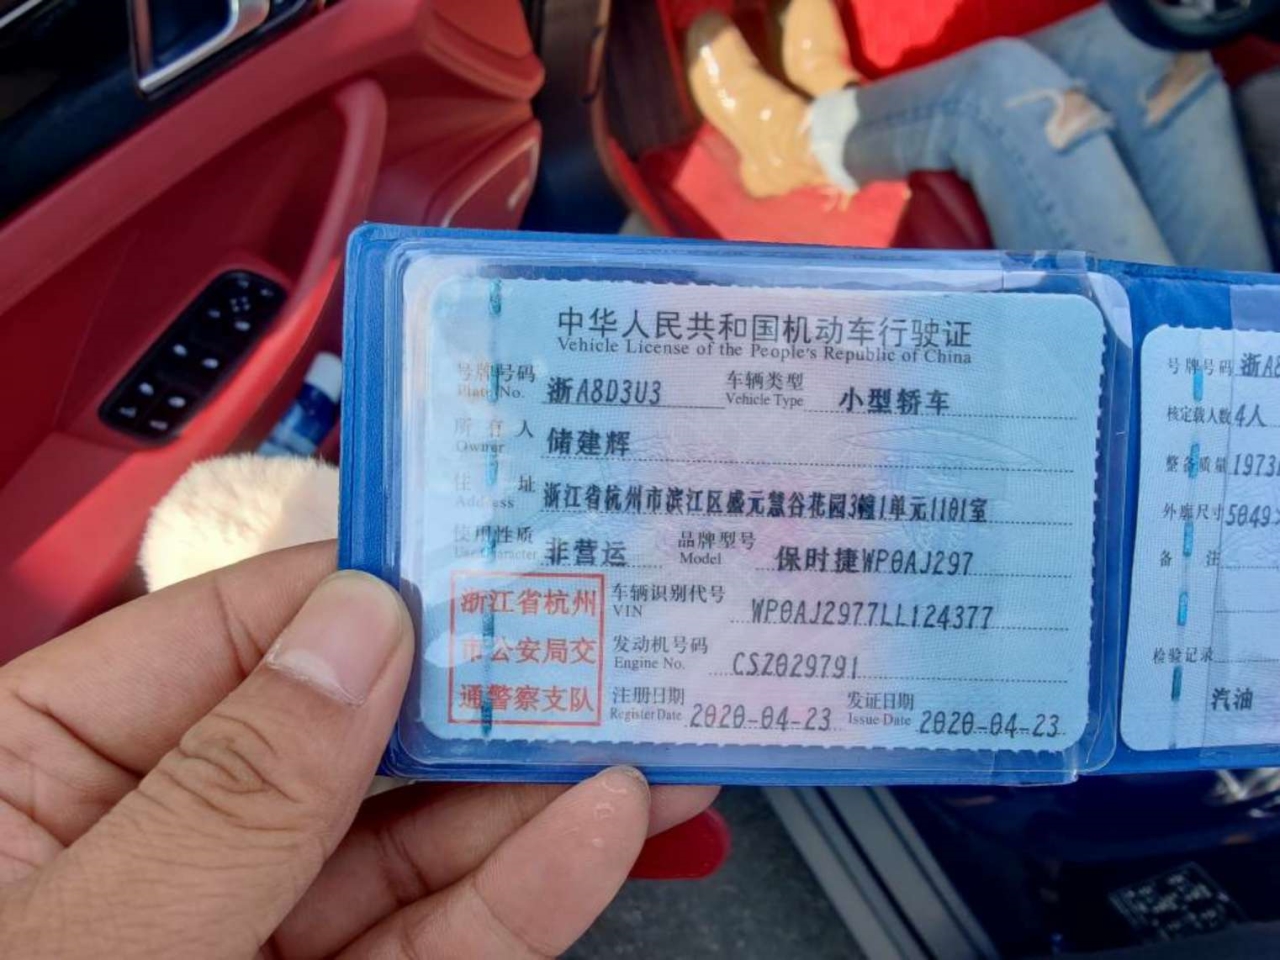 中华人民共和国机动车行驶证
Vehicle License of the People's Republic of China
号牌号码 浙A8D3U3 车辆类型 小型轿车
Plate No. Vehicle Type
所有人 储建辉
Owner
住址 浙江省杭州市滨江区盛元慧谷花园3幢1单元1101室
Address
使用性质 非营运 品牌型号 保时捷WP0AJ297
Use Character Model
浙江省杭州
市公安局交
通警察支队
车辆识别代号 WP0AJ2977LL124377
VIN
发动机号码 CSZ029791
Engine No.
注册日期 2020-04-23 发证日期 2020-04-23
Register Date Issue Date
号牌号码 浙A8
核定载人数 4人
整备质量 1973
外廓尺寸 5049
备注
检验记录
汽油